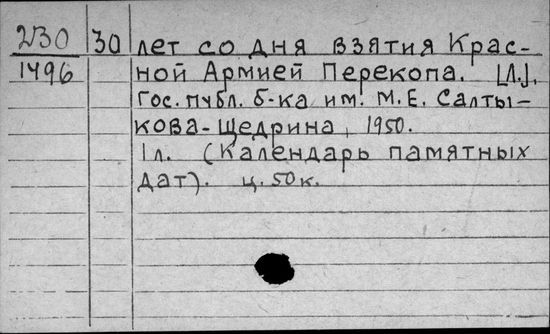 2/30 30 лет со дня взятия Крас-
1496 ной Армией Перекопа. [Л.],
Гос. публ. б-ка им. М. Е. Салты-
кова-Щедрина, 1950.
1 л. (Календарь памятных
дат). ц. 50 к.